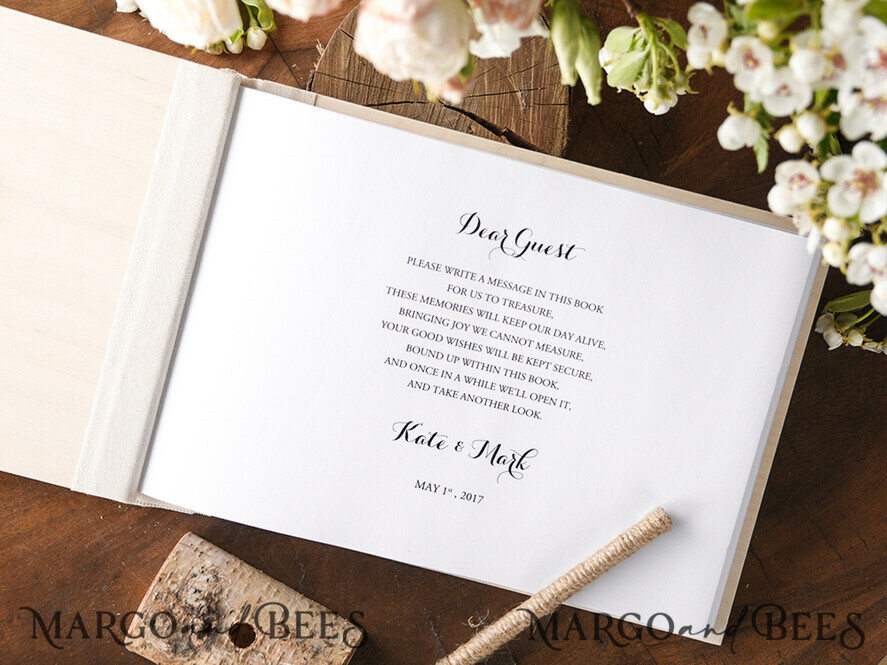 Dear Guest
PLEASE WRITE A MESSAGE IN THIS BOOK
FOR US TO TREASURE,
THESE MEMORIES WILL KEEP OUR DAY ALIVE,
BRINGING JOY WE CANNOT MEASURE,
YOUR GOOD WISHES WILL BE KEPT SECURE,
BOUND UP WITHIN THIS BOOK,
AND ONCE IN A WHILE WE'LL OPEN IT,
AND TAKE ANOTHER LOOK.
Kate & Mark
MAY 1st, 2017
MARGO and BEES
MARGO and BEES